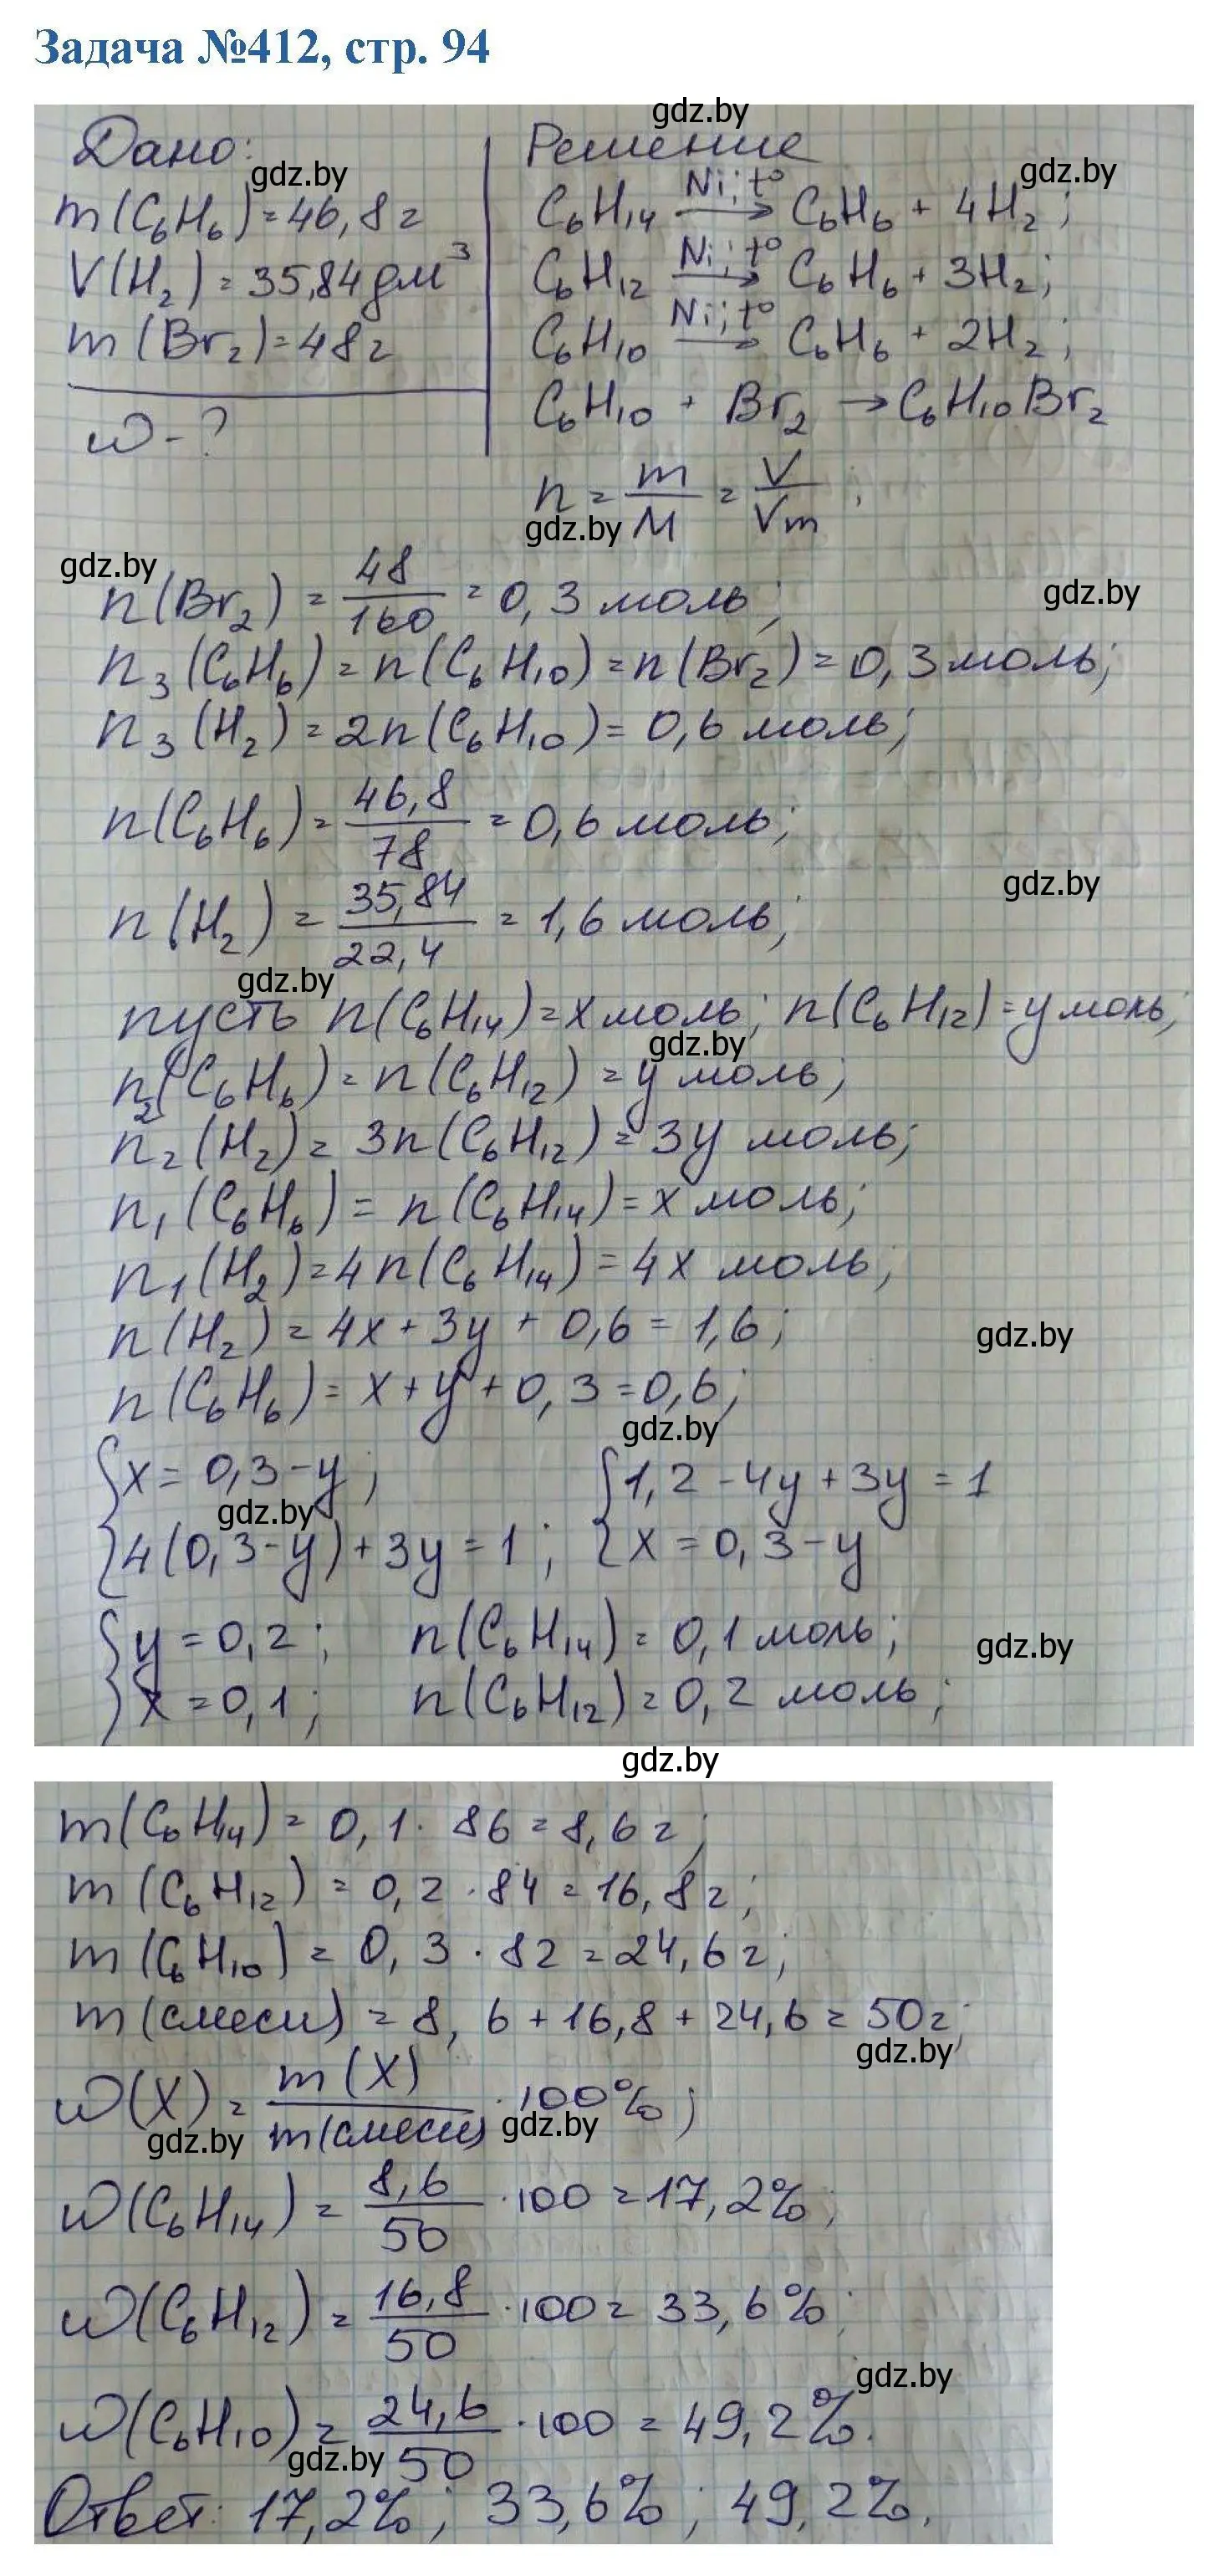 Задача №412, стр. 94
gdz.by
Дано:
gdz.by
m(C₆H₆)=46,8г
V(H₂)=35,84дм³
m(Br₂)=48г
ω-?
Решение
gdz.by
C₆H₁₄ Ni; t° → C₆H₆ + 4H₂;
C₆H₁₂ Ni; t° → C₆H₆ + 3H₂;
C₆H₁₀ Ni; t° → C₆H₆ + 2H₂;
C₆H₁₀ + Br₂ → C₆H₁₀Br₂
n = m/M = V/Vm;
gdz.by
gdz.by
n(Br₂) = 48/160 = 0,3 моль;
gdz.by
n₃(C₆H₆) = n(C₆H₁₀) = n(Br₂) = 0,3 моль;
n₃(H₂) = 2n(C₆H₁₀) = 0,6 моль;
n(C₆H₆) = 46,8/78 = 0,6 моль;
gdz.by
n(H₂) = 35,84/22,4 = 1,6 моль;
gdz.by
пусть n(C₆H₁₄) = x моль; n(C₆H₁₂) = y моль;
gdz.by
n₂(C₆H₆) = n(C₆H₁₂) = y моль;
n₂(H₂) = 3n(C₆H₁₂) = 3y моль;
n₁(C₆H₆) = n(C₆H₁₄) = x моль;
n₁(H₂) = 4n(C₆H₁₄) = 4x моль;
n(H₂) = 4x + 3y + 0,6 = 1,6;
gdz.by
n(C₆H₆) = x + y + 0,3 = 0,6;
gdz.by
{x = 0,3 - y; {1,2 - 4y + 3y = 1
gdz.by
{4(0,3 - y) + 3y = 1; {x = 0,3 - y
{y = 0,2; n(C₆H₁₄) = 0,1 моль;
gdz.by
{x = 0,1; n(C₆H₁₂) = 0,2 моль;
gdz.by
m(C₆H₁₄) = 0,1 · 86 = 8,6г;
m(C₆H₁₂) = 0,2 · 84 = 16,8г;
m(C₆H₁₀) = 0,3 · 82 = 24,6г;
m(смеси) = 8,6 + 16,8 + 24,6 = 50г;
gdz.by
ω(X) = m(X)/m(смеси) · 100%;
gdz.by
gdz.by
ω(C₆H₁₄) = 8,6/50 · 100 = 17,2%;
ω(C₆H₁₂) = 16,8/50 · 100 = 33,6%;
gdz.by
ω(C₆H₁₀) = 24,6/50 · 100 = 49,2%.
gdz.by
Ответ: 17,2%; 33,6%; 49,2%.